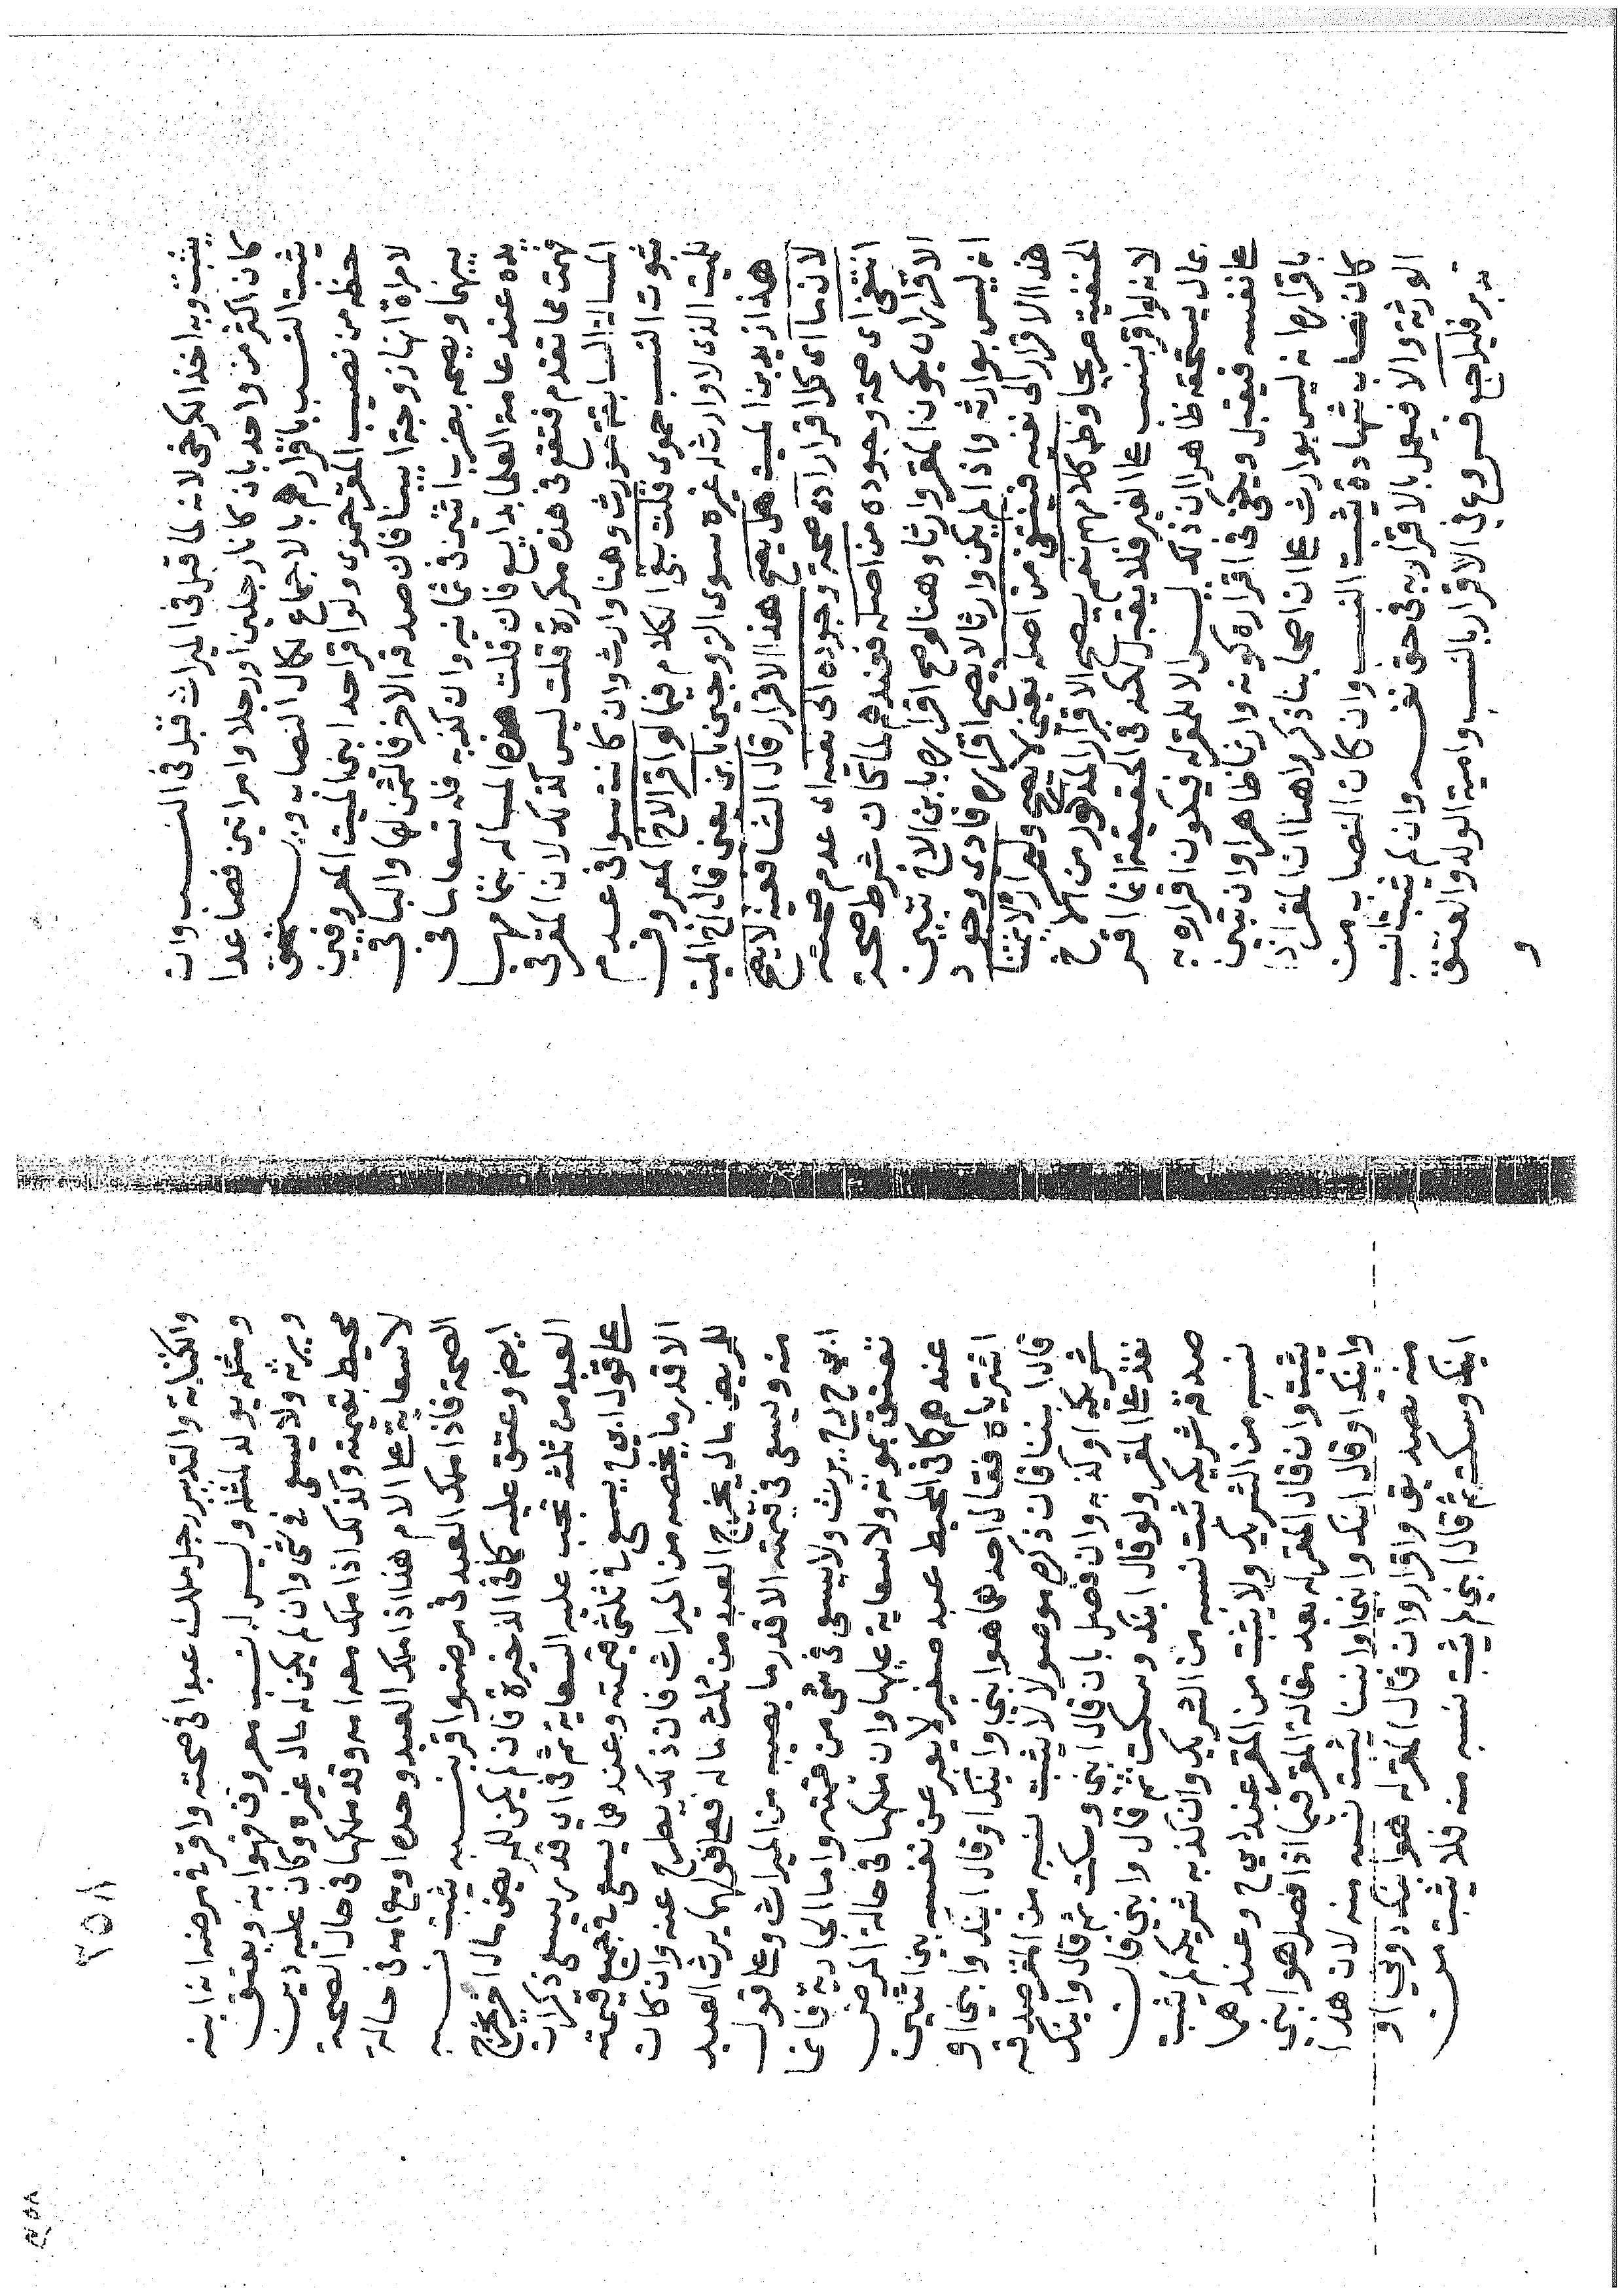 يثبت وبه اخذ الكرخى لانه لما قبل فى الميراث قبل فى النسب وان
كان اكثر من واحد بان كانا رجلين او رجلا وامراتين فصاعدا
يثبت النسب باقرارهم بالاجماع لكمال النصاب ويستحق
حظه من نصيب المقر حموى ولو اقر احد ابنى الميت المعروفين
لامراة انها زوجة ابينا فان صدقه الاخر فالثمن لها والباقى
بينهما ويصححه بضرب اثنين فى ثمانية وان كذبه فله تسعا ما فى
يده عند عامة العلما بدايع فان قلت هذه المسالة بتمامها
فهمت مما تقدم فتقع فى هذه مكررة قلت ليس كذلك لان المقر فى
المسالة السابقة مورث وهنا وارث وان كانت سوا فى عدم
ثبوت النسب حموى قلت بقى الكلام فيما لو اقر الاخ المعروف
للميت الذى لا وارث له غيره سوى الزوجين بابن يعنى قال اخ الميت
هذا زيد بن الميت هل يصح هذا الاقرار قال الشافعية لا يصح
لان ما اى كل اقرار ادى صحة وجوده الى نفيه اى عدم صحته
انتفى اى صحة وجوده من اصله فعندهم لما كان شرط صحة
الاقرار ان يكون المقر وارثا وهنا لو صح اقراره بابن الاخ تبين
انه ليس بوارث واذا لم يكن وارثا لا يصح اقراره فادى وجود
هذا الاقرار الى نفيه فينتفى من اصله يعنى لا يصح ولم ار لائمتنا
الحنفية صريحا وظ كلامهم نعم يصح الاقرار المذكور من الاخ
لانه لو اقر بنسب على الغير فلا يقبل لكنه فى الحقيقة انما اقر
بمال يستحقه ظاهرا ان ذلك ليس الا للمقر له فيكون اقراره به
على نفسه فيقبل ويكفى فى اقراره كونه وارثا ظاهرا وان تبين
باقراره انه ليس بوارث على ان اصحابنا ذكروا هنا ان المقر اذا
كان نصاب شهادة يثبت النسب وان كان النصاب من
الورثة والا فيعمل بالاقرار به فى حق نفسه وان لم يثبت النسب
تدبر فليراجع فروع فى الاقرار بالنسب وامية الولد والعتق
و
٢٥٨
والكتابة والتدبير رجل ملك عبدا فى صحته واقر فى مرضه انه ابنه
ومثله يولد لمثله وليس له نسب معروف فهو ابنه ويعتق
ويرثه ولا يسعى فى شى وان لم يكن له مال غيره وكان عليه دين
محيط بقيمته وكذلك اذا ملك معه امه وقد ملكها فى حال الصحة
لا سعاية على الام هنا اذا ملك العبد وحده او مع امه فى حالة
الصحة فاذا ملك العبد فى مرضه واقر بنسبه يثبت نسبه
ايضا وعتق عليه كما فى الذخيرة فان لم يكن للمريض مال اخر يخرج
العبد من ثلثه تجب عليه السعاية ثم فى اي قدر يسعى ذكر ان
على قول ابي ح يسعى فى ثلثى قيمته وعندهما يسعى فى جميع قيمته
الا قدر ما يخصه من الميراث فان ذلك يطرح عنه وان كان
للمريض مال يخرج العبد من ثلث ماله فعلى قولهما يرث العبد
منه ويسعى فى قيمته الا قدر ما يصيبه من الميراث وعلى قول
ابي ح رح يرث ولا يسعى فى شى من قيمته واما الجارية فانما
تعتق بموته ولا سعاية عليها وان ملكها فى حالة المرض
عندهم كما فى المحيط عبد صغير لا يعبر عن نفسه بين اثنين
اشترياه فقال احدهما هو ابنى وابنك او قال ابنك وابنى او
قال ابننا فان ذكره موصولا لا يثبت نسبه من المقر صدقه
شريكه او كذبه وان فصل بان قال ابنى وسكت ثم قال وابنك
نفذ على المقر ولو قال ابنك وسكت ثم قال وابنى فان
صدقه شريكه ثبت نسبه من الشريك وان كذبه شريكه لم يثبت
نسبه من الشريك ولا يثبت من المقر عند ابي ح وعندهما
يثبت وان قال المقر له بعد مقالة المقر فيما اذا فصل هو ابنى
وابنك او قال ابنك وابنى او ابننا يثبت نسبه منه لان هذا
منه تصديق واقرار وان قال المقر له هو ابنك دونى او
ابنك وسكت ثم قال ابنى لم يثبت نسبه منه فلا يثبت من